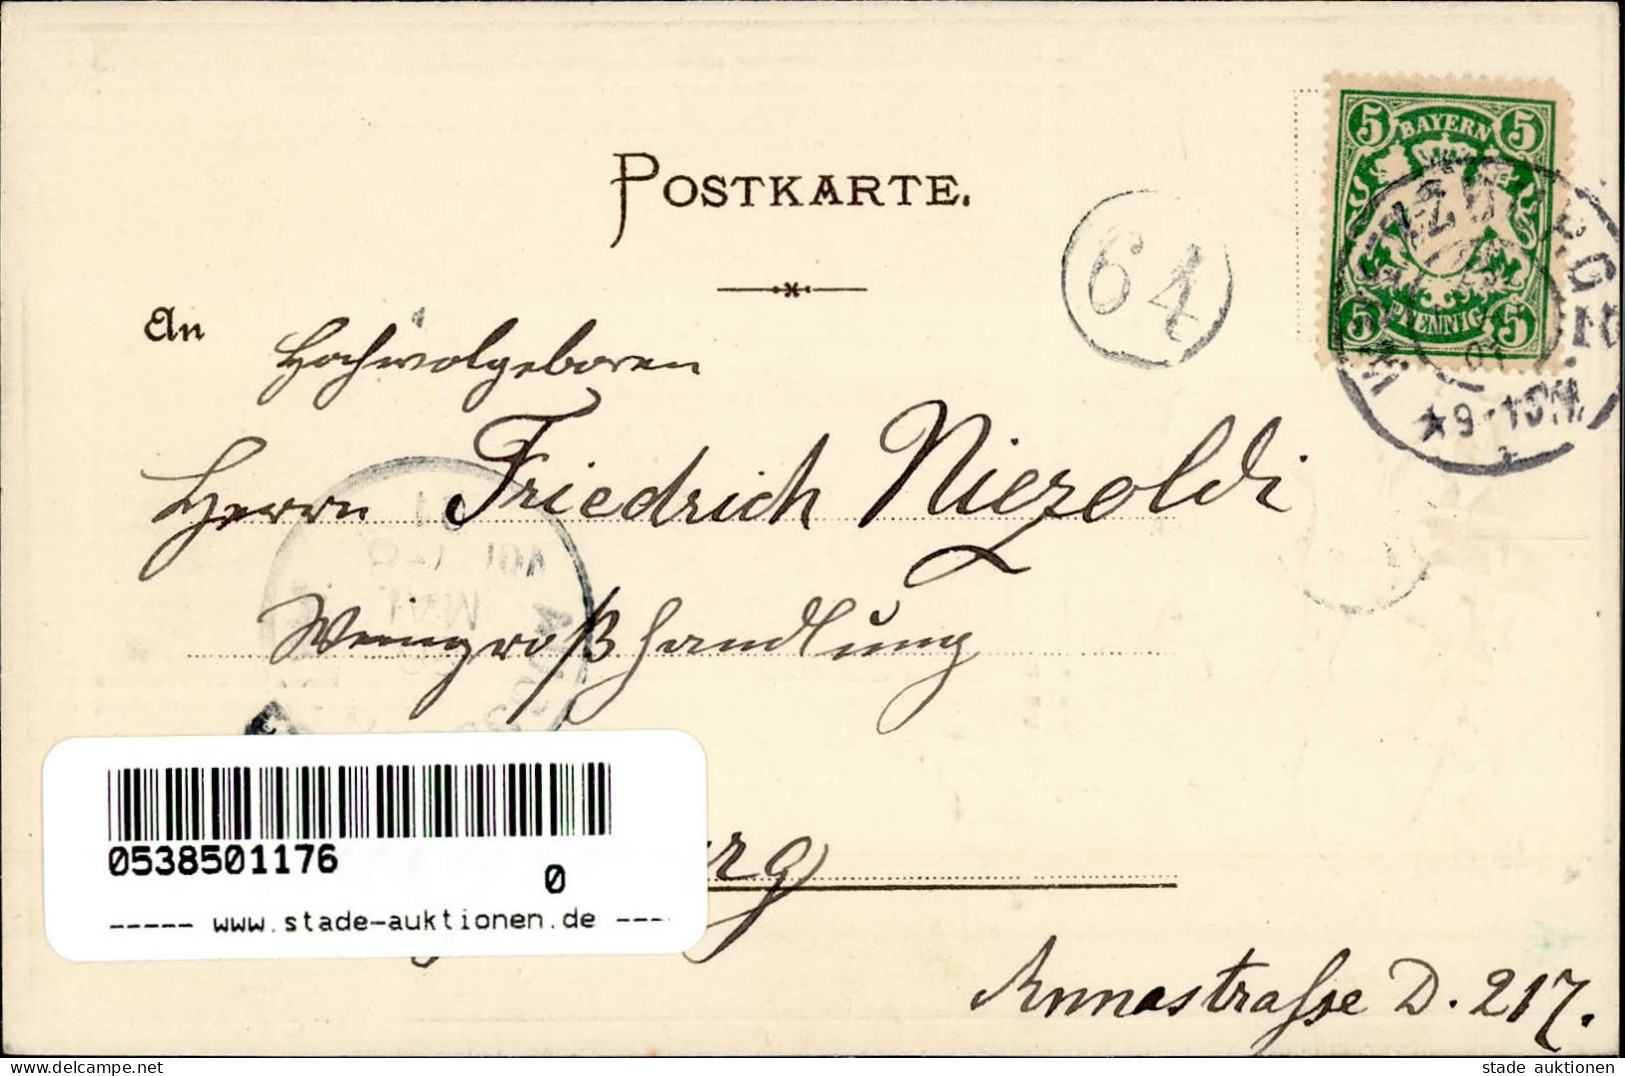 POSTKARTE.
5 BAYERN 5
5 PFENNIG 5
WÜRZBURG
01
★9-10N.
64
An
Hochwolgeboren
Herrn Friedrich Niezoldi
Weingroßhandlung
rg
Annastraſse D. 217.
0538501176
0
----- www.stade-auktionen.de ----
delcampe.net
stade auktionen